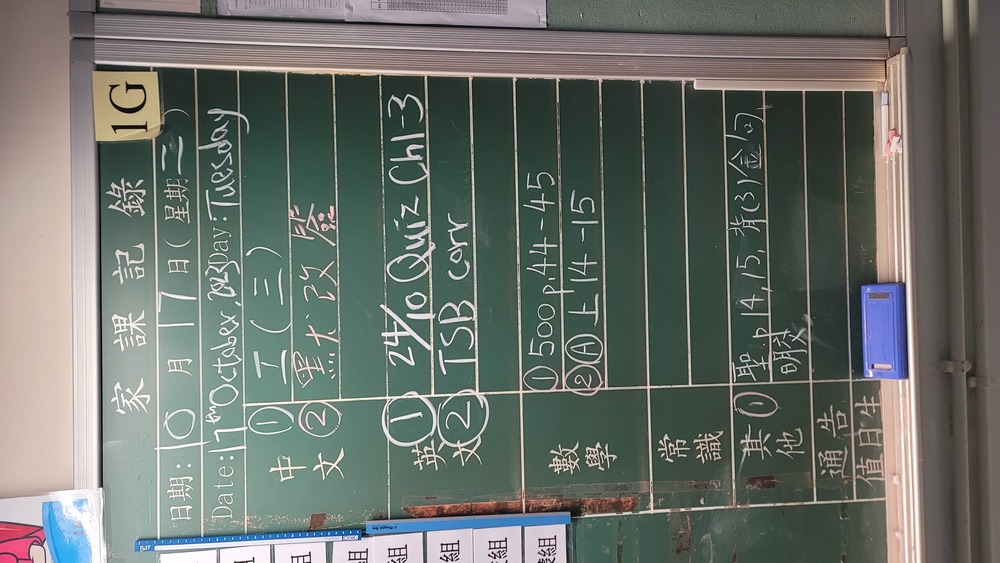 1G
家課記錄
日期:10月17日(星期二)
Date:17th October, 2023 Day:Tuesday
中文
① 工(三)
② 黑大改簽
英文
① 24/10 Quiz Ch1-3
② TSB corr
數學
① 500 p.44-45
② Ⓐ上14-15
常識
其他
① 聖:p14,15,背(3)金句
明交
通告
值日生
組
組
組
組
組
組
組